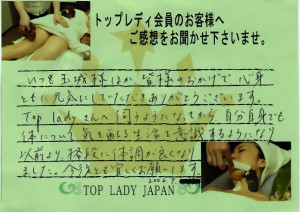 トップレディ会員のお客様へ
ご感想をお聞かせ下さいませ。
いつも玉城様ほか、皆様のおかげで心身
ともに元気にしていただきありがとうございます。
Top Ladyさんへ伺うようになってから、自分自身でも
体について気を配る生活を意識するようになり
以前より、格段に体調が良くなり
ました。今後とも宜しくお願いします。
TOP LADY JAPAN